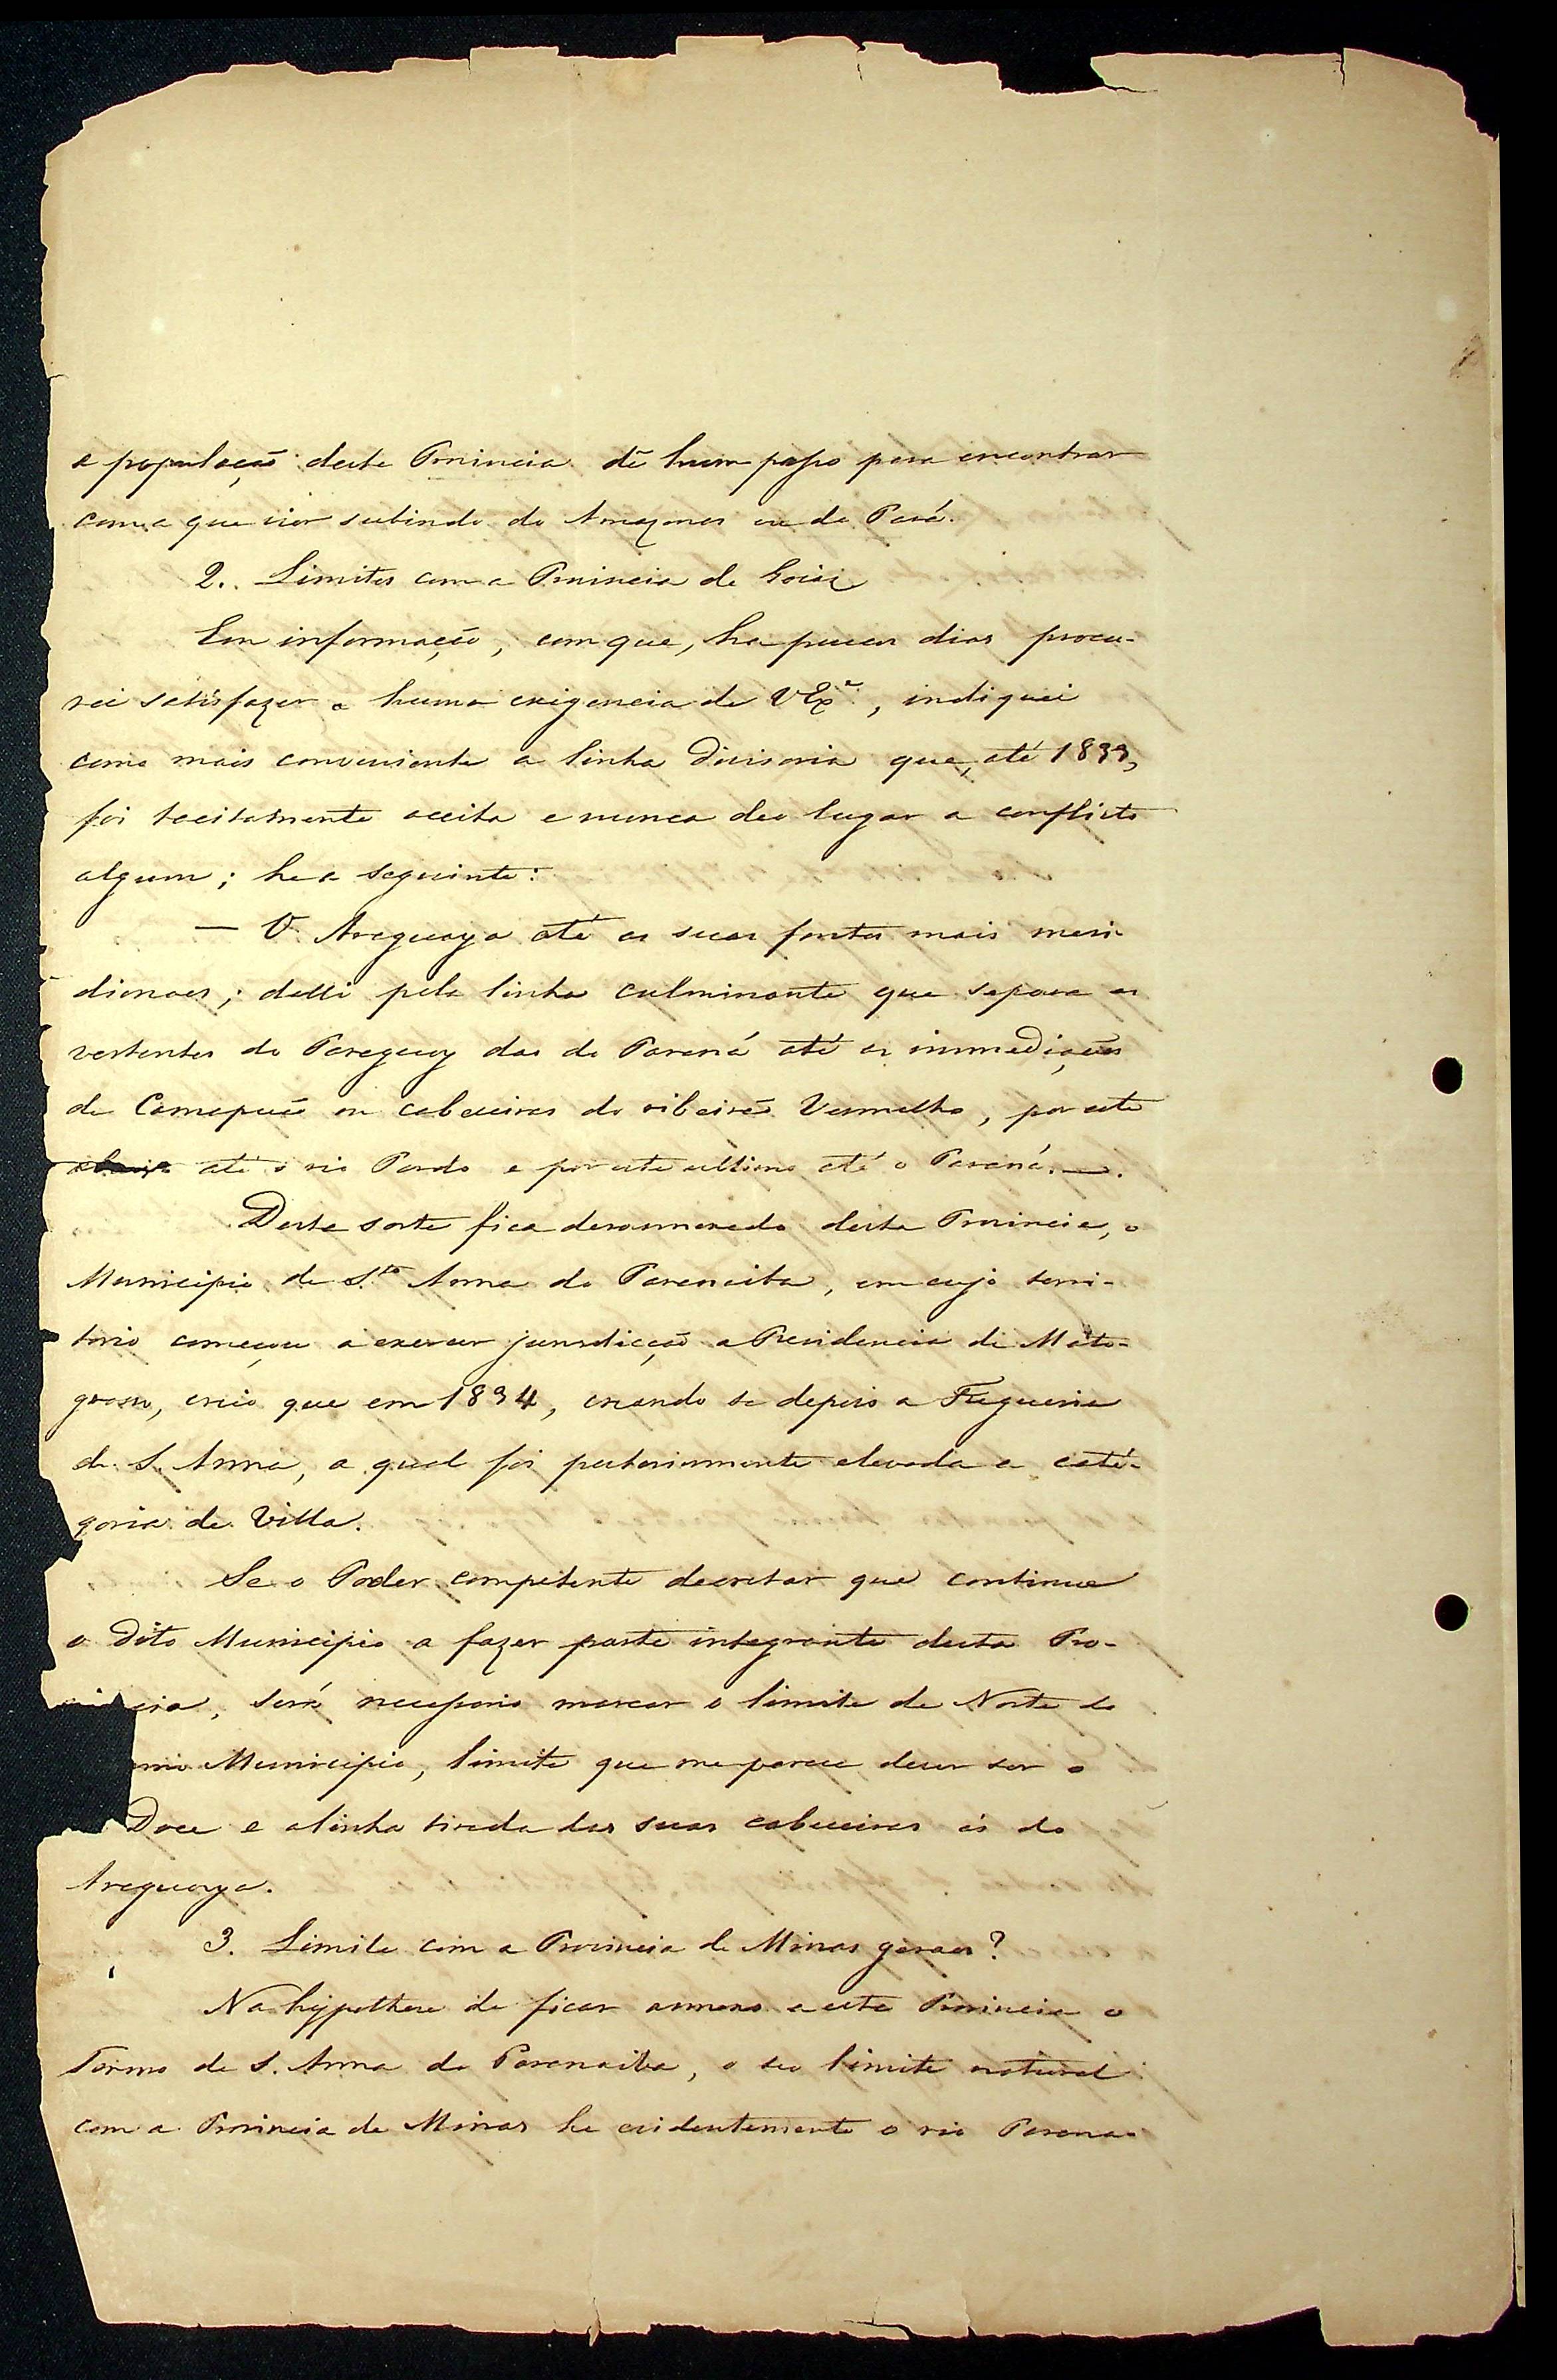 a população desta Provincia dê hum passo para encontrar
com a que vier subindo do Amazonas ou do Pará.
2. Limites com a Provincia de Goiaz
Em informação, com que, ha poucos dias procu-
rei satisfazer a huma exigencia de V Exª, indiquei
como mais conveniente a linha divisoria que, até 1833,
foi tacitamente aceita e nunca deo lugar a conflicto
algum; he a seguinte:
— O Araguaya até as suas fontes mais meri-
dionaes; dalli pela linha culminante que separa as
vertentes do Paraguay das do Paraná até as immediações
de Camapuã ou cabeceiras do ribeirão Vermelho, por este
até o rio Pardo e por este ultimo até o Paraná. —.
Desta sorte fica desannexado desta Provincia, o
Municipio de Sta Anna do Paranaiba, em cujo terri-
torio começou a exercer jurisdicção a Presidencia de Mato-
grosso, creio que em 1834, creando se depois a Freguesia
de S. Anna, a qual foi posteriormente elevada a cate-
goria de Villa.
Se o Poder competente decretar que continue
o dito Municipio a fazer parte integrante desta Pro-
cia, será necessario marcar o limite de Norte do
mo Municipio, limite que me parece dever ser o
Doce e a linha tirada das suas cabeceiras ás do
Araguaya.
3. Limite com a Provincia de Minas geraes?
Na hypothese de ficar annexo a esta Provincia o
Termo de S. Anna do Paranaiba, o seo limite natural
com a Provincia de Minas he evidentemente o rio Parana-